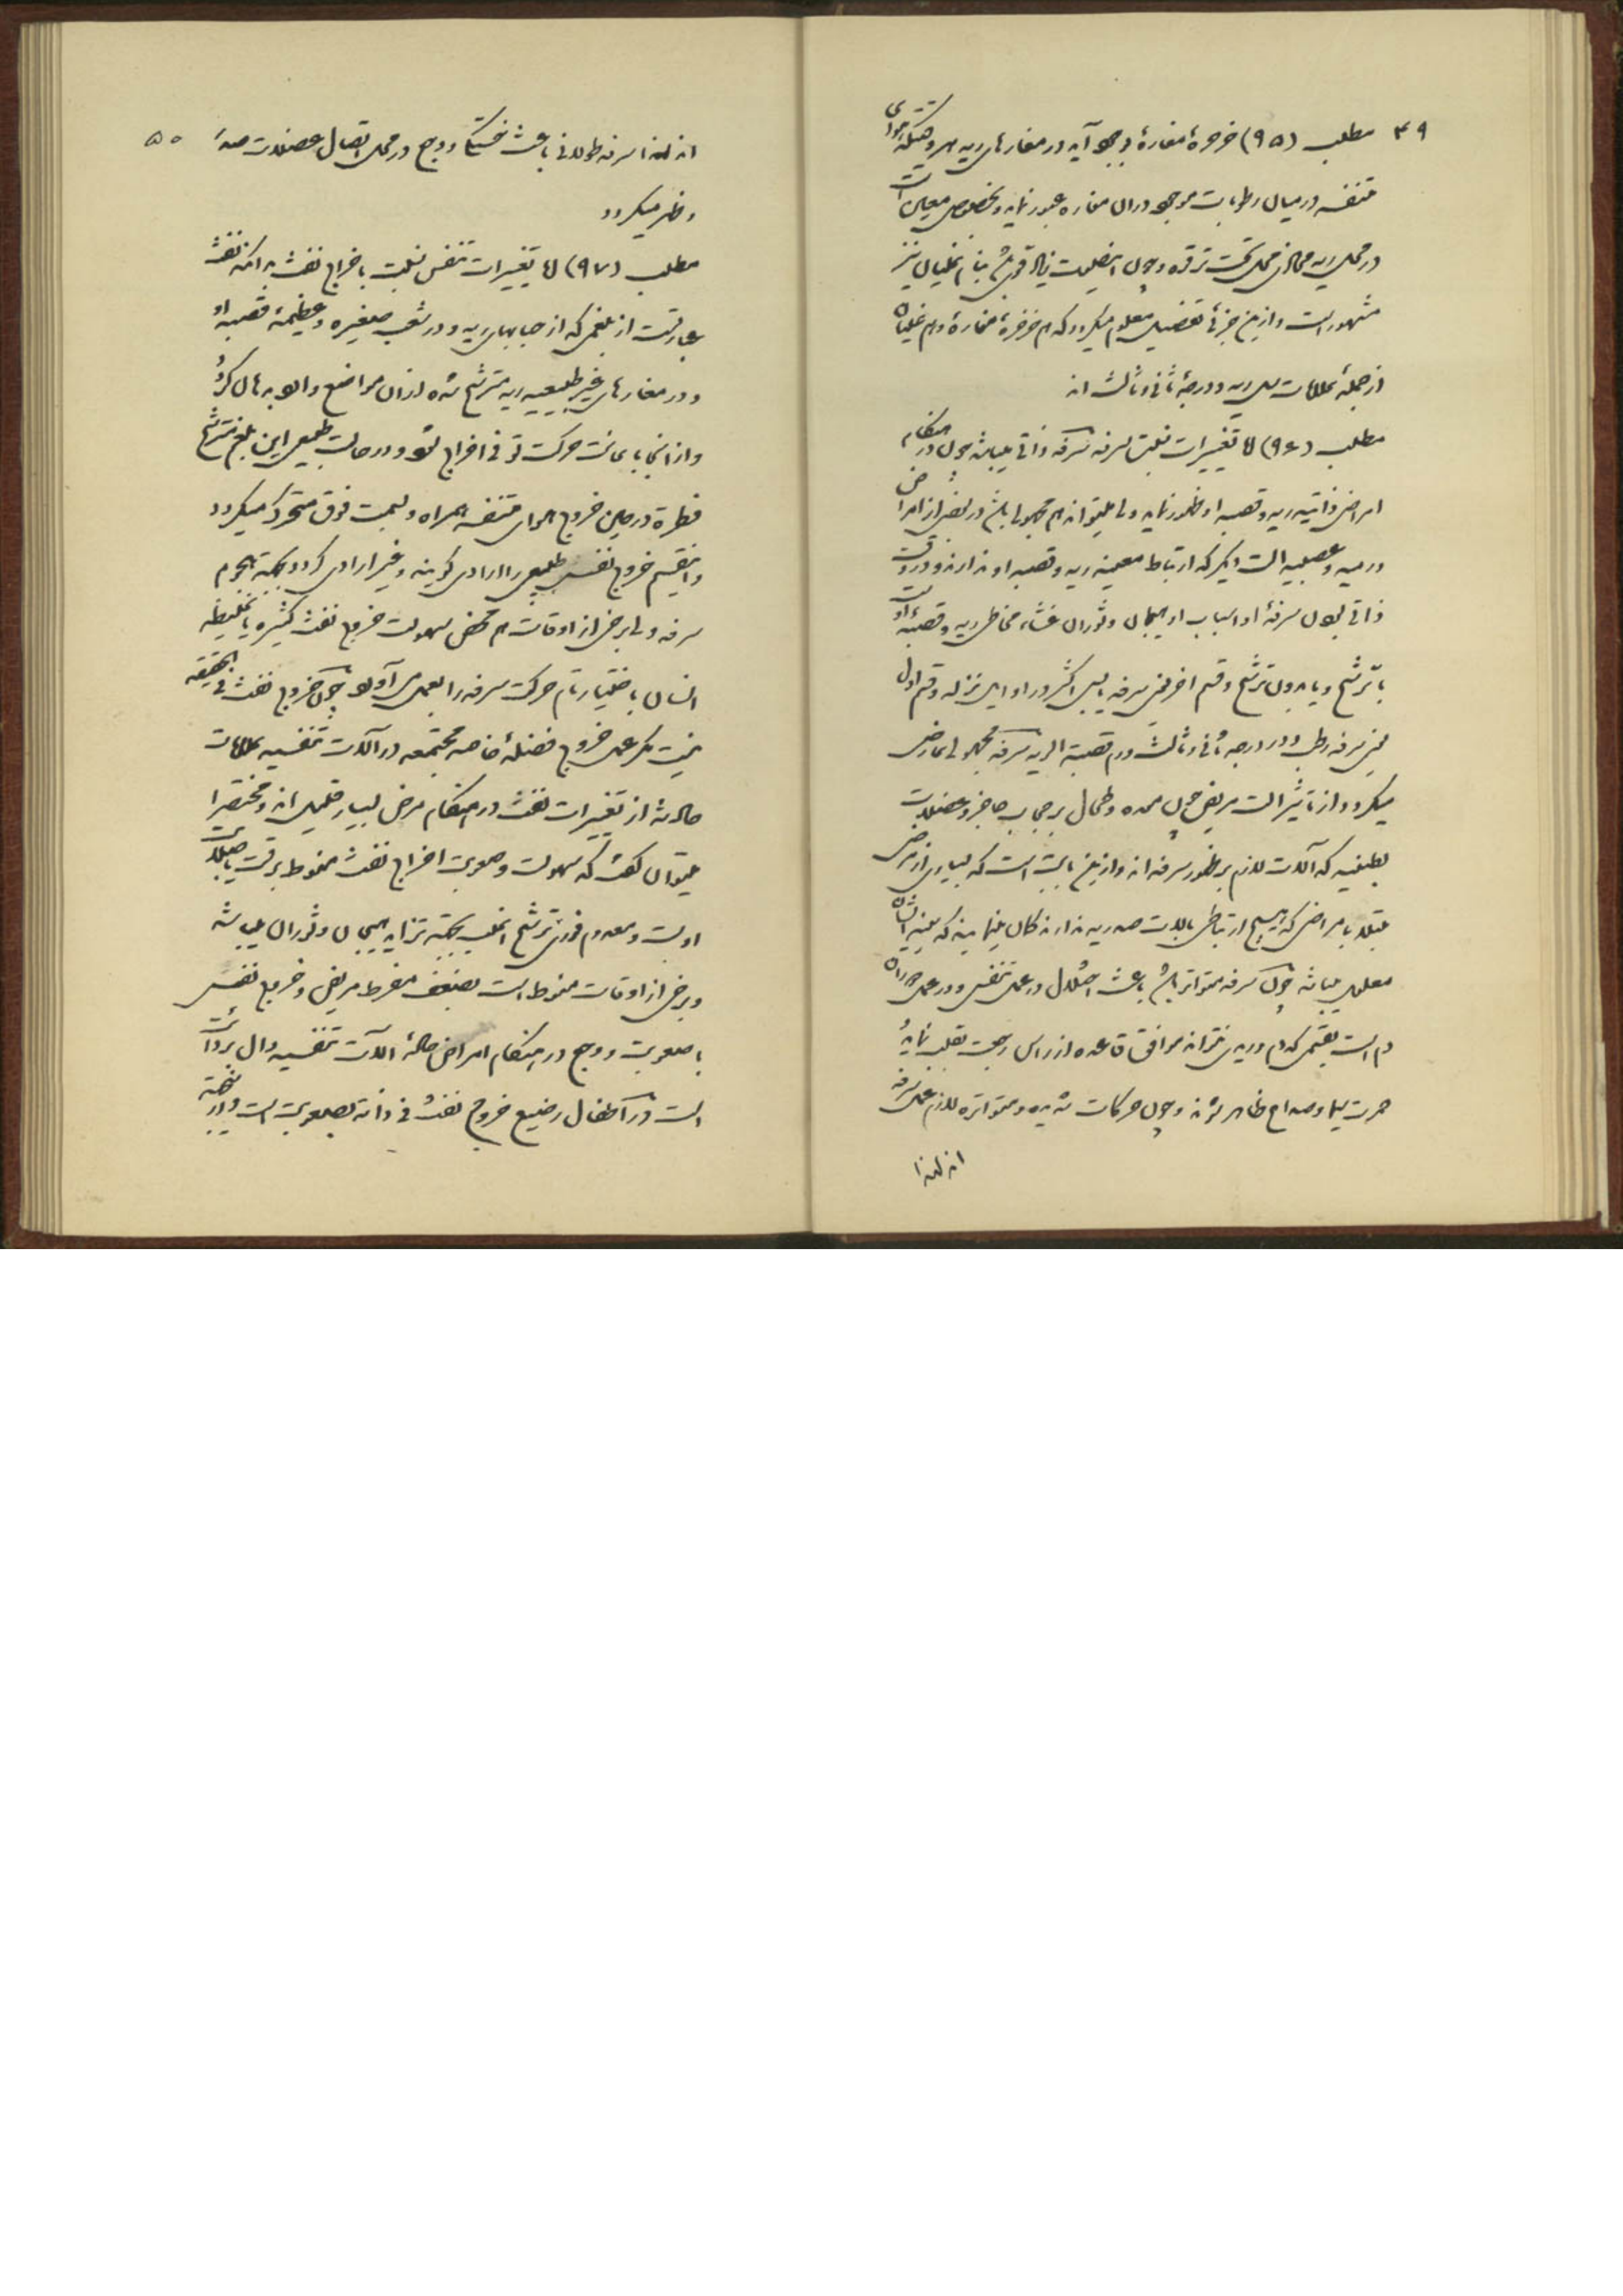 ۴۹ مطلب (۹۵) خرخرهٔ مغارهٔ بوجود آید در مغارهای ریه هروقتیکه هوای
متنفسه در میان رطوبات موجود در ان مغاره عبور نماید و بخصوص معین است
در محل ریه محاذی محل تحت ترقوه و چون این صوت زیاد قوی باشد بنام غلیان نیز
مشهور است و ازین جزئی تفصیل معلوم میکردد که هم خرخرهٔ مغارهٔ و هم غلیان
از جملهٔ علامات سل ریه و درجهٔ ثانی و ثالث اند
مطلب (۹۶) اما تغییرات نسبت بسرفه سرفه ذاتی میباشد چون در هنکام
امراض ذاتیه ریه و قصبه او ظهور نماید ولی میتواند هم مجهولی باشد در بعضی از امراض
ورمیه و عصبیه الات دیکر که ارتباط معینه بریه و قصبه او ندارند و در وقت
ذاتی بودن سرفهٔ او اسباب او هیجان و ثوران غشاء مخاطی ریه و قصبهٔ او است
با ترشح و یا بدون ترشح و قسم اخر یعنی سرفه یابس اکثر در اوایل نزله و قسم اول
یعنی سرفه رطب و در درجه ثانی و ثالث ورم قصبة الریه سرفه مجهولی عارض
میکردد از تاثیر الات مریض چون معده و طحال بر حجاب حاجز و عضلات
بطنیه که آلات لازم بر ظهور سرفه اند و ازین بابت است که بسیاری از مرضی
مبتلا بامراضی که هیچ ارتباطی بالات صدریه ندارند کمان مینمایند که سینه ایشان
معلول میباشد چون سرفه متواتر باشد باعث اختلال در عمل تنفس و در عمل دوران
دم است بقسمی که دم وریدی نتواند موافق قاعده از راس رجعت بقلب نماید
حمرت سیما و صداع ظاهر شوند و چون حرکات شدیده و متواتره لازم عمل سرفه
اند لهذا
۵۰ اند لهذا سرفه طولانی باعث خستکی و وجع در محل اتصال عضلات صدر
و ظهر میکردد
مطلب (۹۷) اما تغییرات تنفس نسبت باخراج نفث بدانکه نفث
عبارتست از بلغمی که از حبابهای ریه و در شعب صغیره و عظیمهٔ قصبه او
و در مغارهای غیر طبیعیه ریه مترشح شده از ان مواضع و الوبها ل کردد
و از انجا باعانت حرکت توفی اخراج شود و در حالت طبیعی این بلغم مترشح
فطرة در حین خروج هوای متنفسه همراه و بسمت فوق متحرک میکردد
و اینقسم خروج نفس طبیعی را ارادی کویند و غیر ارادی کردد بجهة هجوم
سرفه ولی برخی از اوقات هم محض سهولت خروج نفث کثیره یا غلیظه
انسان باختیار تام حرکت سرفه را بعمل می آورد چون خروج نفث فی الحقیقه
نیست مکر عمل خروج فضلهٔ خاصه مجتمعه در آلات تنفسیه علامات
حادثه از تغییرات نفث در هنکام مرض بسیار قلیل اند و مختصرا
میتوان کفت که سهولت و صعوبت اخراج نفث منوط برقت یا صلابت
اوست و معدوم فوری ترشح اغلب بجهة تزاید هیجان و ثوران میباشد
و برخی از اوقات منوط است بضعف مفرط مریض و خروج نفس
با صعوبت و وجع در هنکام امراض حادهٔ الات تنفسیه دال بر دائت
است و در اطفال رضیع خروج نفث فی ذاته بصعوبت است و از